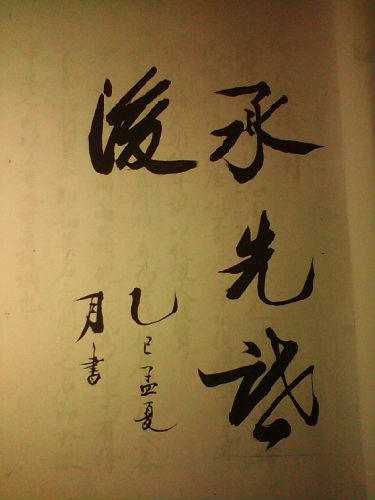 承先啓
後
乙巳孟夏
月書